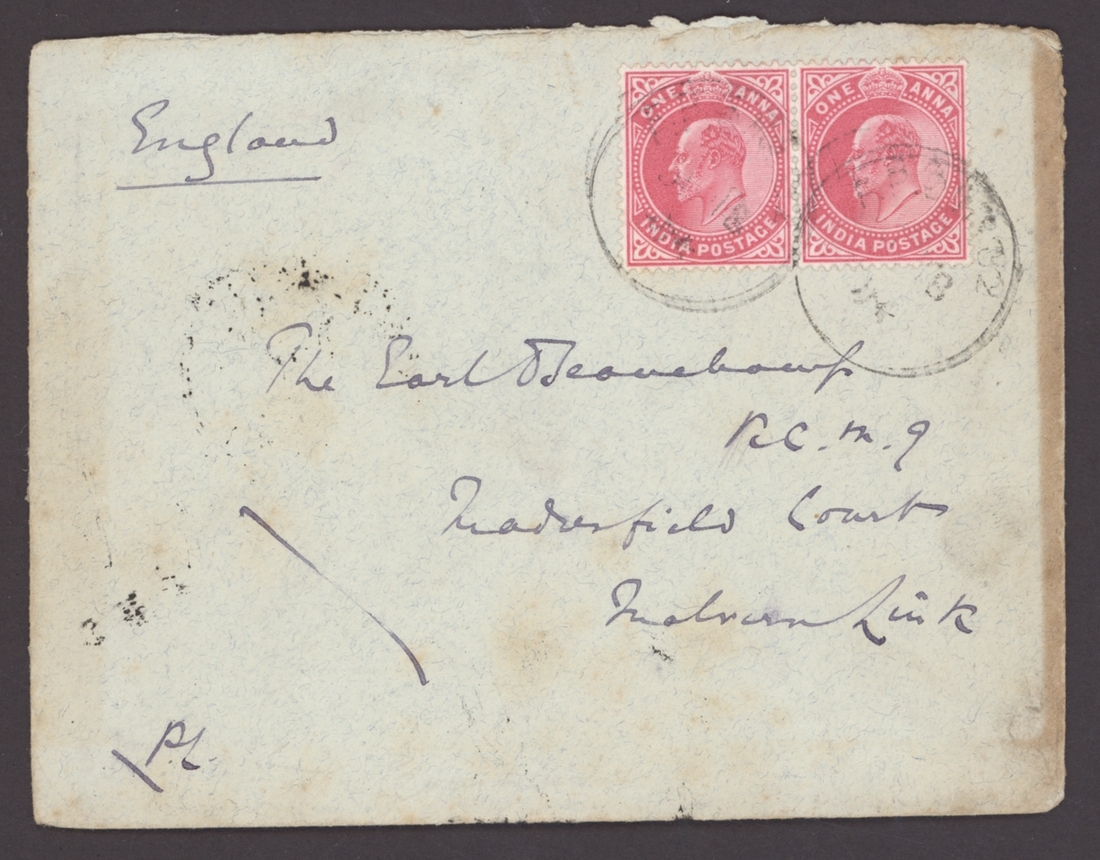 England
ONE ANNA
INDIA POSTAGE
ONE ANNA
INDIA POSTAGE
The Earl Beauchamp
K.C.M.G
Madresfield Court
Malvern Link